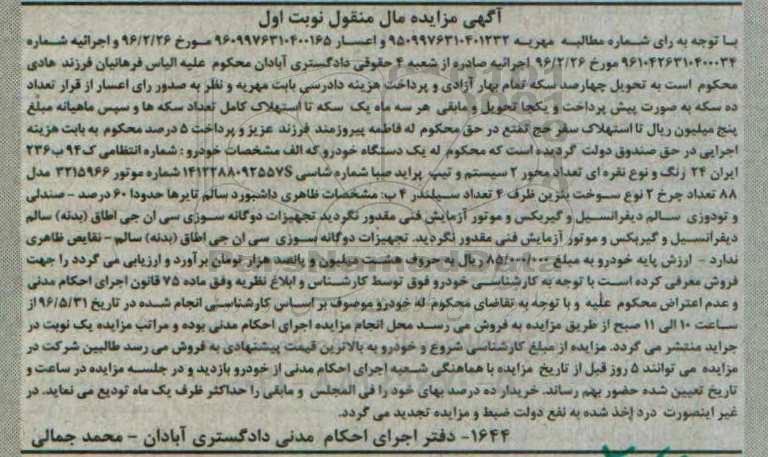 آگهی مزایده مال منقول نوبت اول
بـا توجه به رای شـماره مطالبـه مهریـه ۹۵۰۹۹۷۶۳۱۰۴۰۱۲۳۲ و اعسـار ۹۶۰۹۹۷۶۳۱۰۴۰۰۱۶۵ مـورخ ۹۶/۲/۲۶ و اجرائیه شماره
۹۶۱۰۴۲۶۳۱۰۴۰۰۰۳۴ مورخ ۹۶/۲/۲۶ اجرائیه صادره از شعبه ۴ حقوقی دادگستری آبادان محکوم علیه الیاس فرهانیان فرزند هادی
محکوم است به تحویل چهارصد سکه تمام بهار آزادی و پرداخت هزینه دادرسی بابت مهریه و نظر به صدور رای اعسار از قرار تعداد
ده سکه به صورت پیش پرداخت و یکجا تحویل و مابقی هر سه ماه یک سکه تا استهلاک کامل تعداد سکه ها و سپس ماهیانه مبلغ
پنج میلیون ریال تا استهلاک سفر حج تمتع در حق محکوم له فاطمه پیروزمند فرزند عزیز و پرداخت ۵ درصد محکوم به بابت هزینه
اجرایی در حق صندوق دولت گردیده است که محکوم له یک دستگاه خودرو که الف مشخصات خودرو : شماره انتظامی ک۹۴ ب۲۳۶
ایران ۲۴ رنگ و نوع نقره ای تعداد محور ۲ سیستم و تیپ پراید صبا شماره شاسی S۱۴۱۲۲۸۸۰۹۲۵۵۷ شماره موتور ۳۲۱۵۹۶۶ مدل
۸۸ تعداد چرخ ۲ نوع سـوخت بنزین ظرف ۴ تعداد سـیلندر ۴ ب: مشخصات ظاهری داشبورد سالم تایرها حدودا ۶۰ درصد - صندلی
و تودوزی سـالم دیفرانسـیل و گیربکس و موتور آزمایش فنی مقدور نگردید تجهیزات دوگانه سـوزی سی ان جی اطاق (بدنه) سالم
دیفرانسـیل و گیربکس و موتور آزمایش فنی مقدور نگردید. تجهیزات دوگانه سـوزی سی ان جی اطاق (بدنه) سالم - نقایص ظاهری
ندارد - ارزش پایه خودرو به مبلغ ۸۵/۰۰۰/۰۰۰ ریال به حروف هشـت میلیون و پانصد هزار تومان برآورد و ارزیابی می گردد را جهت
فروش معرفی کرده اسـت با توجه به کارشناسـی خودرو فوق توسط کارشناس و ابلاغ نظریه وفق ماده ۷۵ قانون اجرای احکام مدنی
و عدم اعتراض محکوم علیه و با توجه به تقاضای محکوم له خودرو موصوف بر اسـاس کارشناسـی انجام شـده در تاریخ ۹۶/۵/۳۱ از
سـاعت ۱۰ الی ۱۱ صبح از طریق مزایده به فروش می رسـد محل انجام مزایده اجرای احکام مدنی بوده و مراتب مزایده یک نوبت در
جراید منتشر می گردد. مزایده از مبلغ کارشناسی شروع و خودرو به بالاترین قیمت پیشنهادی به فروش می رسد طالبین شرکت در
مزایده می توانند ۵ روز قبل از تاریخ مزایده با هماهنگی شـعبه اجرای احکام مدنی از خودرو بازدید و در جلسـه مزایده در ساعت و
تاریخ تعیین شده حضور بهم رسانند. خریدار ده درصد بهای خود را فی المجلس و مابقی را حداکثر ظرف یک ماه تودیع می نماید. در
غیر اینصورت درد إخذ شده به نفع دولت ضبط و مزایده تجدید می گردد.
۱۶۴۴- دفتر اجرای احکام مدنی دادگستری آبادان - محمد جمالی